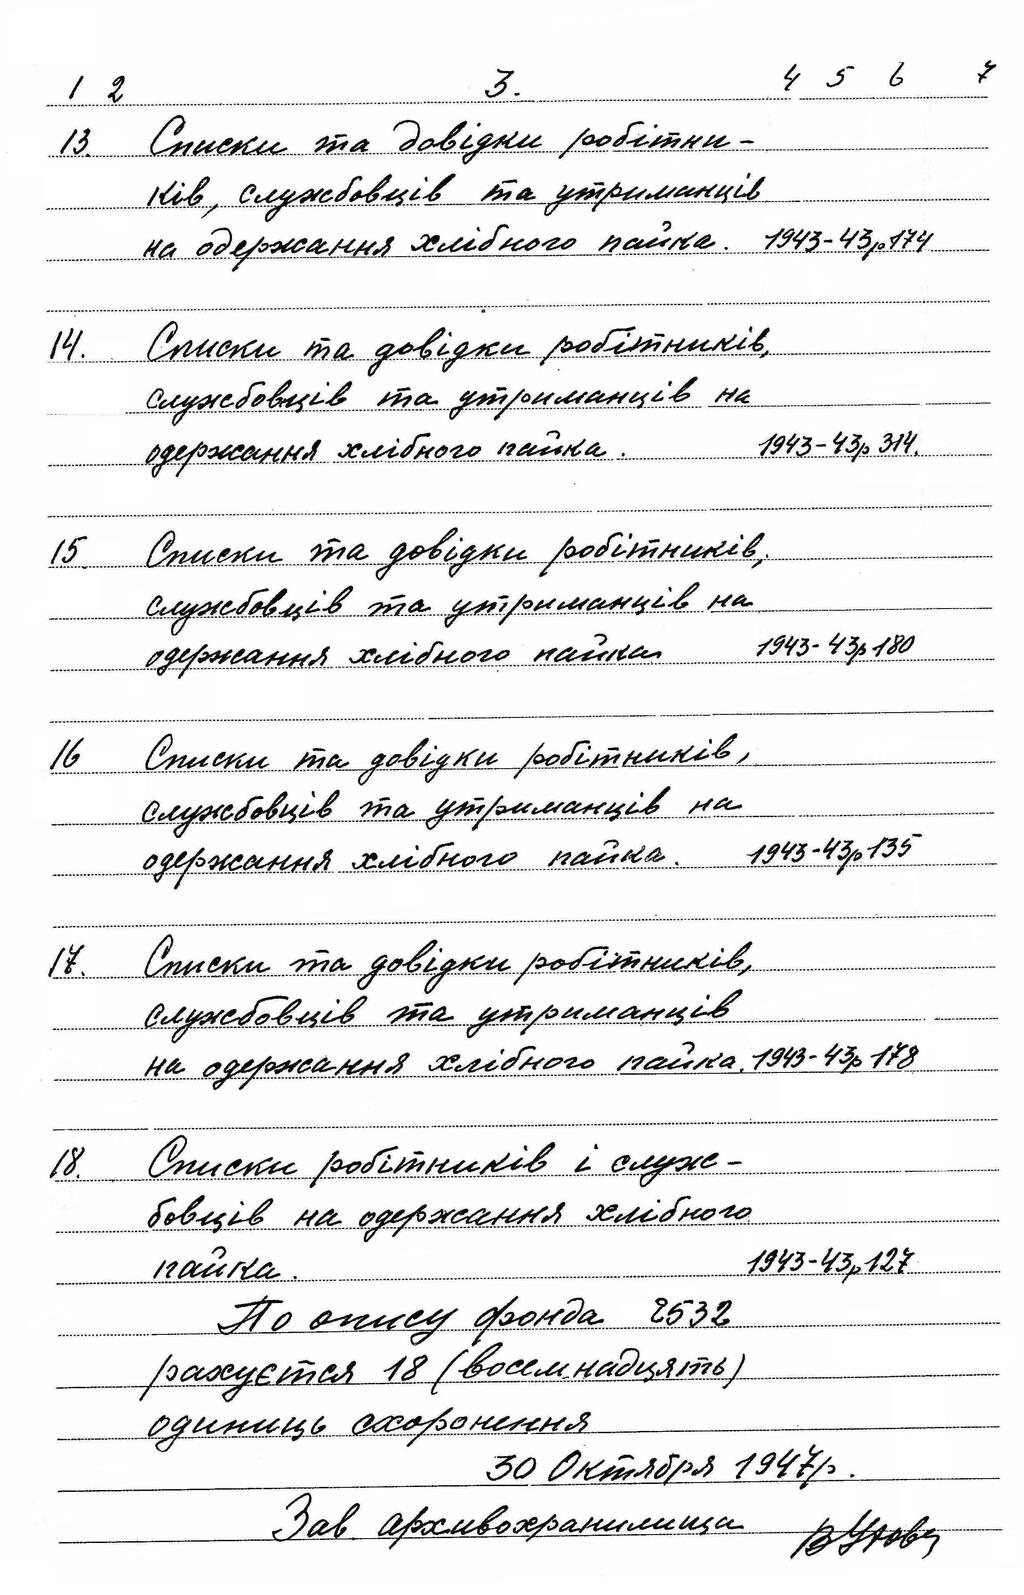 1 2 3. 4 5 6 7
13. Списки та довідки робітни-
ків, службовців та утриманців
на одержання хлібного пайка. 1943-43р 174
14. Списки та довідки робітників,
службовців та утриманців на
одержання хлібного пайка. 1943-43р 314.
15. Списки та довідки робітників,
службовців та утриманців на
одержання хлібного пайка. 1943-43р 180
16 Списки та довідки робітників,
службовців та утриманців на
одержання хлібного пайка. 1943-43р 135
17. Списки та довідки робітників,
службовців та утриманців
на одержання хлібного пайка. 1943-43р 178
18. Списки робітників і служ-
бовців на одержання хлібного
пайка. 1943-43р 127
По опису фонда 2532
рахується 18 (восемнадцять)
одиниць схоронення
30 Октября 1947р.
Зав. архивохранилища